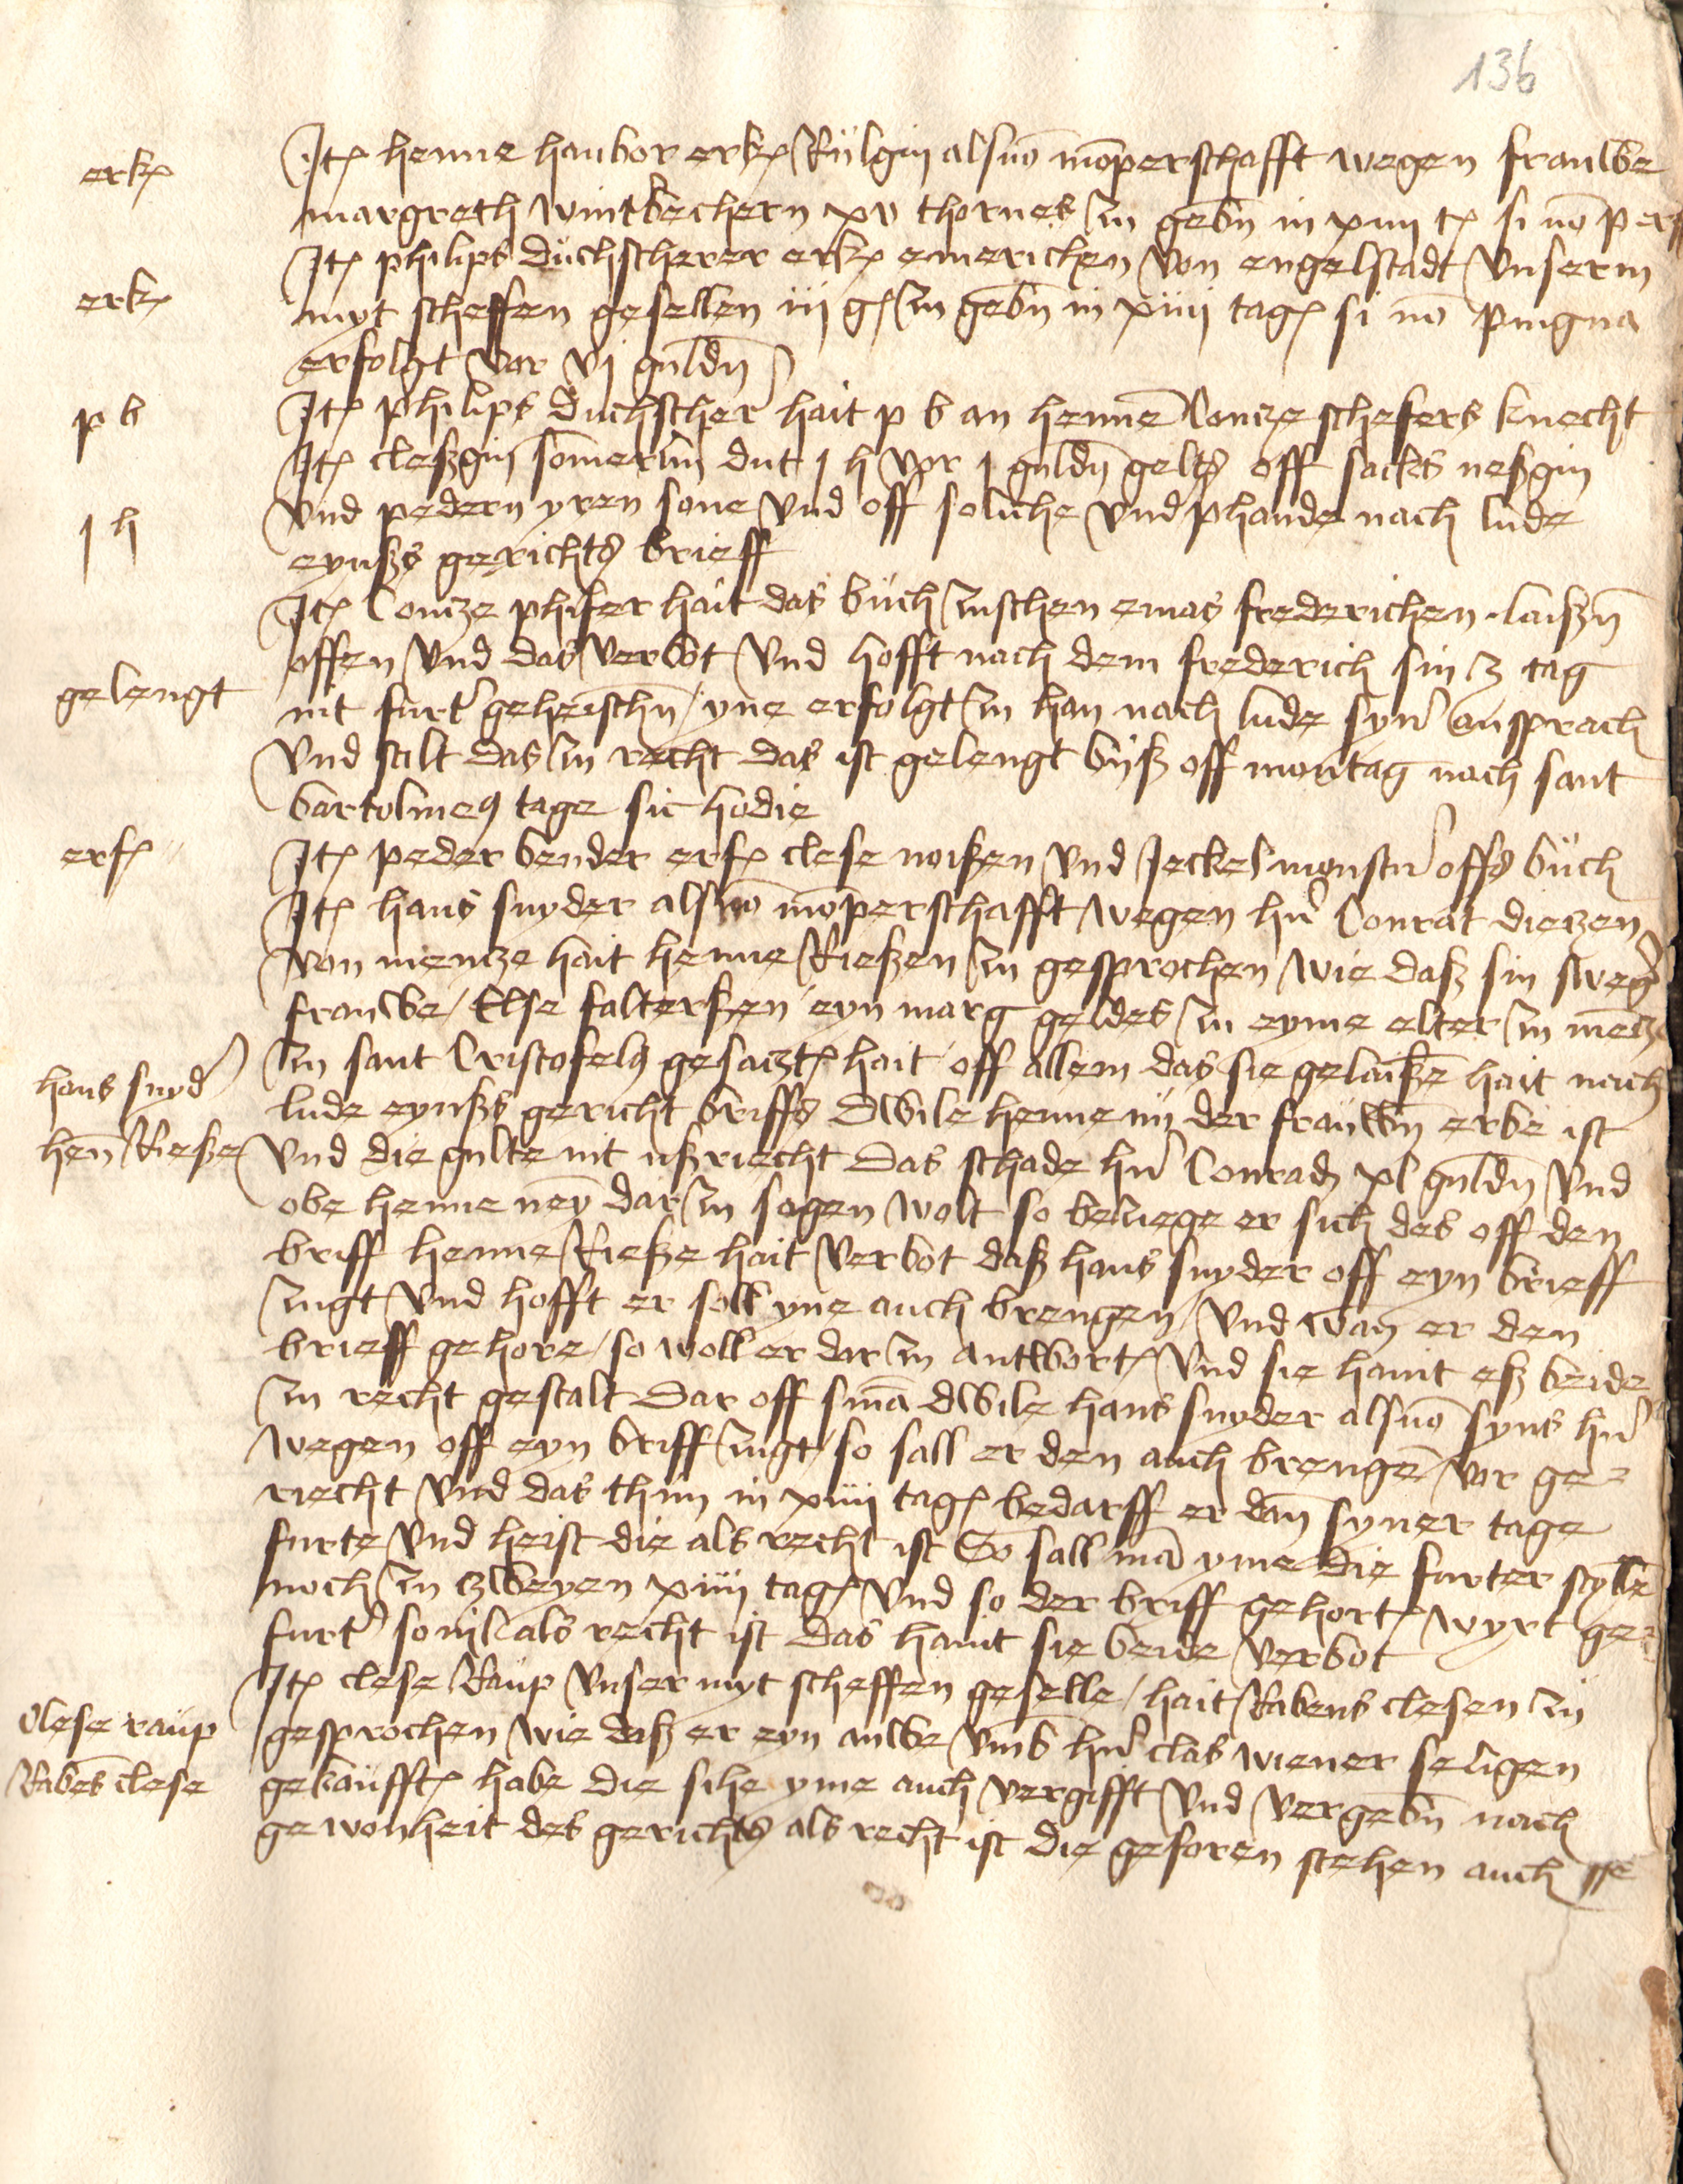 136
erk(
Jt(  henne hanbor erk( Rülgin als mō perschafft wegen frauwe
margreth wintbechern xv thornes zu gebn̄ in xiiij t( si nō p erf(
erk(
Jt( philips duchscherer erk( emerichen von engelstadt vnserm
myt scheffen gesellen iij g( zu gebn̄ in xiiij tag( si nō pingna
erfolgt vor vj guldn̄
p b
Jt( philips duchscher' hait p b an henne Contze schefers knecht
j h
Jt( cleßgin somer dut j h vor j guldn̄ gelts off sackes neßgin
vnd pedern yren sone vnd off soliche vnd phande nach lude
eynßs gerichts brieff
Jt( Contze phifer hait das büch zuschen emas frederichen laißn̄
offen vnd das verbot vnd hofft nach dem frederich sin tag
gelengt
nit furt' geheischn̄ / yne erfolgt zu han nach lude syn' ansprach
vnd stalt das zu recht das ist gelengt byß off montag nach sant
bartolmeus tage sic hodie
erf(
Jt( peder bender erf( clese noißen vnd Jeckel monst' offs büch
Jt( hans snyder als mō perschafft wegen h'n Conrat dietzen
von mentze hait henne Rießen zu gesprochen wie daß sin sweg'
frauwe / Else falterßen eyn marg geldes zu eyme elter zu mētze
hans snyd'
zu sant Cristofels gesatzt( hait off allem das sie gelaißē hait nach
lude eynßs gericht briffs Dwile henne nü der frauwn̄ erbe ist
hen̄ Rieße
vnd die gulte nit ußriecht Das schade h'n Conrad xl guldn̄ vnd
obe henne neȳ dar zu sagen wolt so beziege er sich des off den
briff henne Rieße hait verbot daß hans snyder off eyn brieff
zugt vnd hofft er soll yne auch brengen / vnd wan̄ er den
brieff gehore / so woll er dar zu antwort( vnd sie haint eß beide
zu recht gestalt Dar off sn̄ia dwile hans snyder als syns h'n
wegen off eyn briff zugt / so sall er den auch brengē / vor ge=
riecht vnd das thun in xiiij tag( bedarff er dan̄ syner tage
furte vnd heist die als recht ist So sall mā yme die furter stelle
noch zu zweyen xiiij tag( vnd so der briff gehort( wyrt ge=
furt' so vil als recht ist das haint sie beide verbot
Jt( clese Raup vnser myt scheffen geselle / hait Rabens clesen zu
clese raup
gesprochen wie daß er eyn auwe vmb h'n clas wiener seligen
Rabes clese
gekaufft( habe die sihe yme auch vergifft vnd vergebn̄ nach
gewonheit des gerichts als recht ist die geforen stehen auch